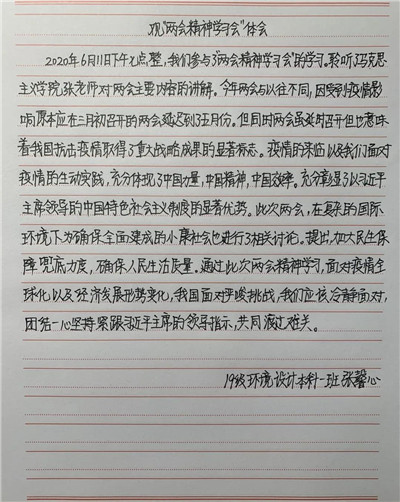 观"两会精神学习会"体会
2020年6月11日下午2点整,我们参与了"两会精神学习会"的学习。聆听冯克思
主义学院张老师对两会主要内容的讲解。今年两会与以往不同,因受到疫情影
响原本应在三月初召开的两会延迟到五月份。但同时两会虽延时召开但也意味
着我国抗击疫情取得了重大战略成果的显著标志。疫情的来临以及我们面对
疫情的生动实践,充分体现了中国力量,中国精神,中国效率。充分彰显了以习近平
主席领导的中国特色社会主义制度的显著优势。此次两会,在复杂的国际
环境下为确保全面建成的小康社会也进行了相关讨论。提出,加大民生保
障兜底力度,确保人民生活质量。通过此次两会精神学习,面对疫情全
球化以及经济发展形势变化,我国面对严峻挑战,我们应该冷静面对,
团结一心坚持紧跟习近平主席的领导指示,共同渡过难关。
19级环境设计本科一班 张馨心